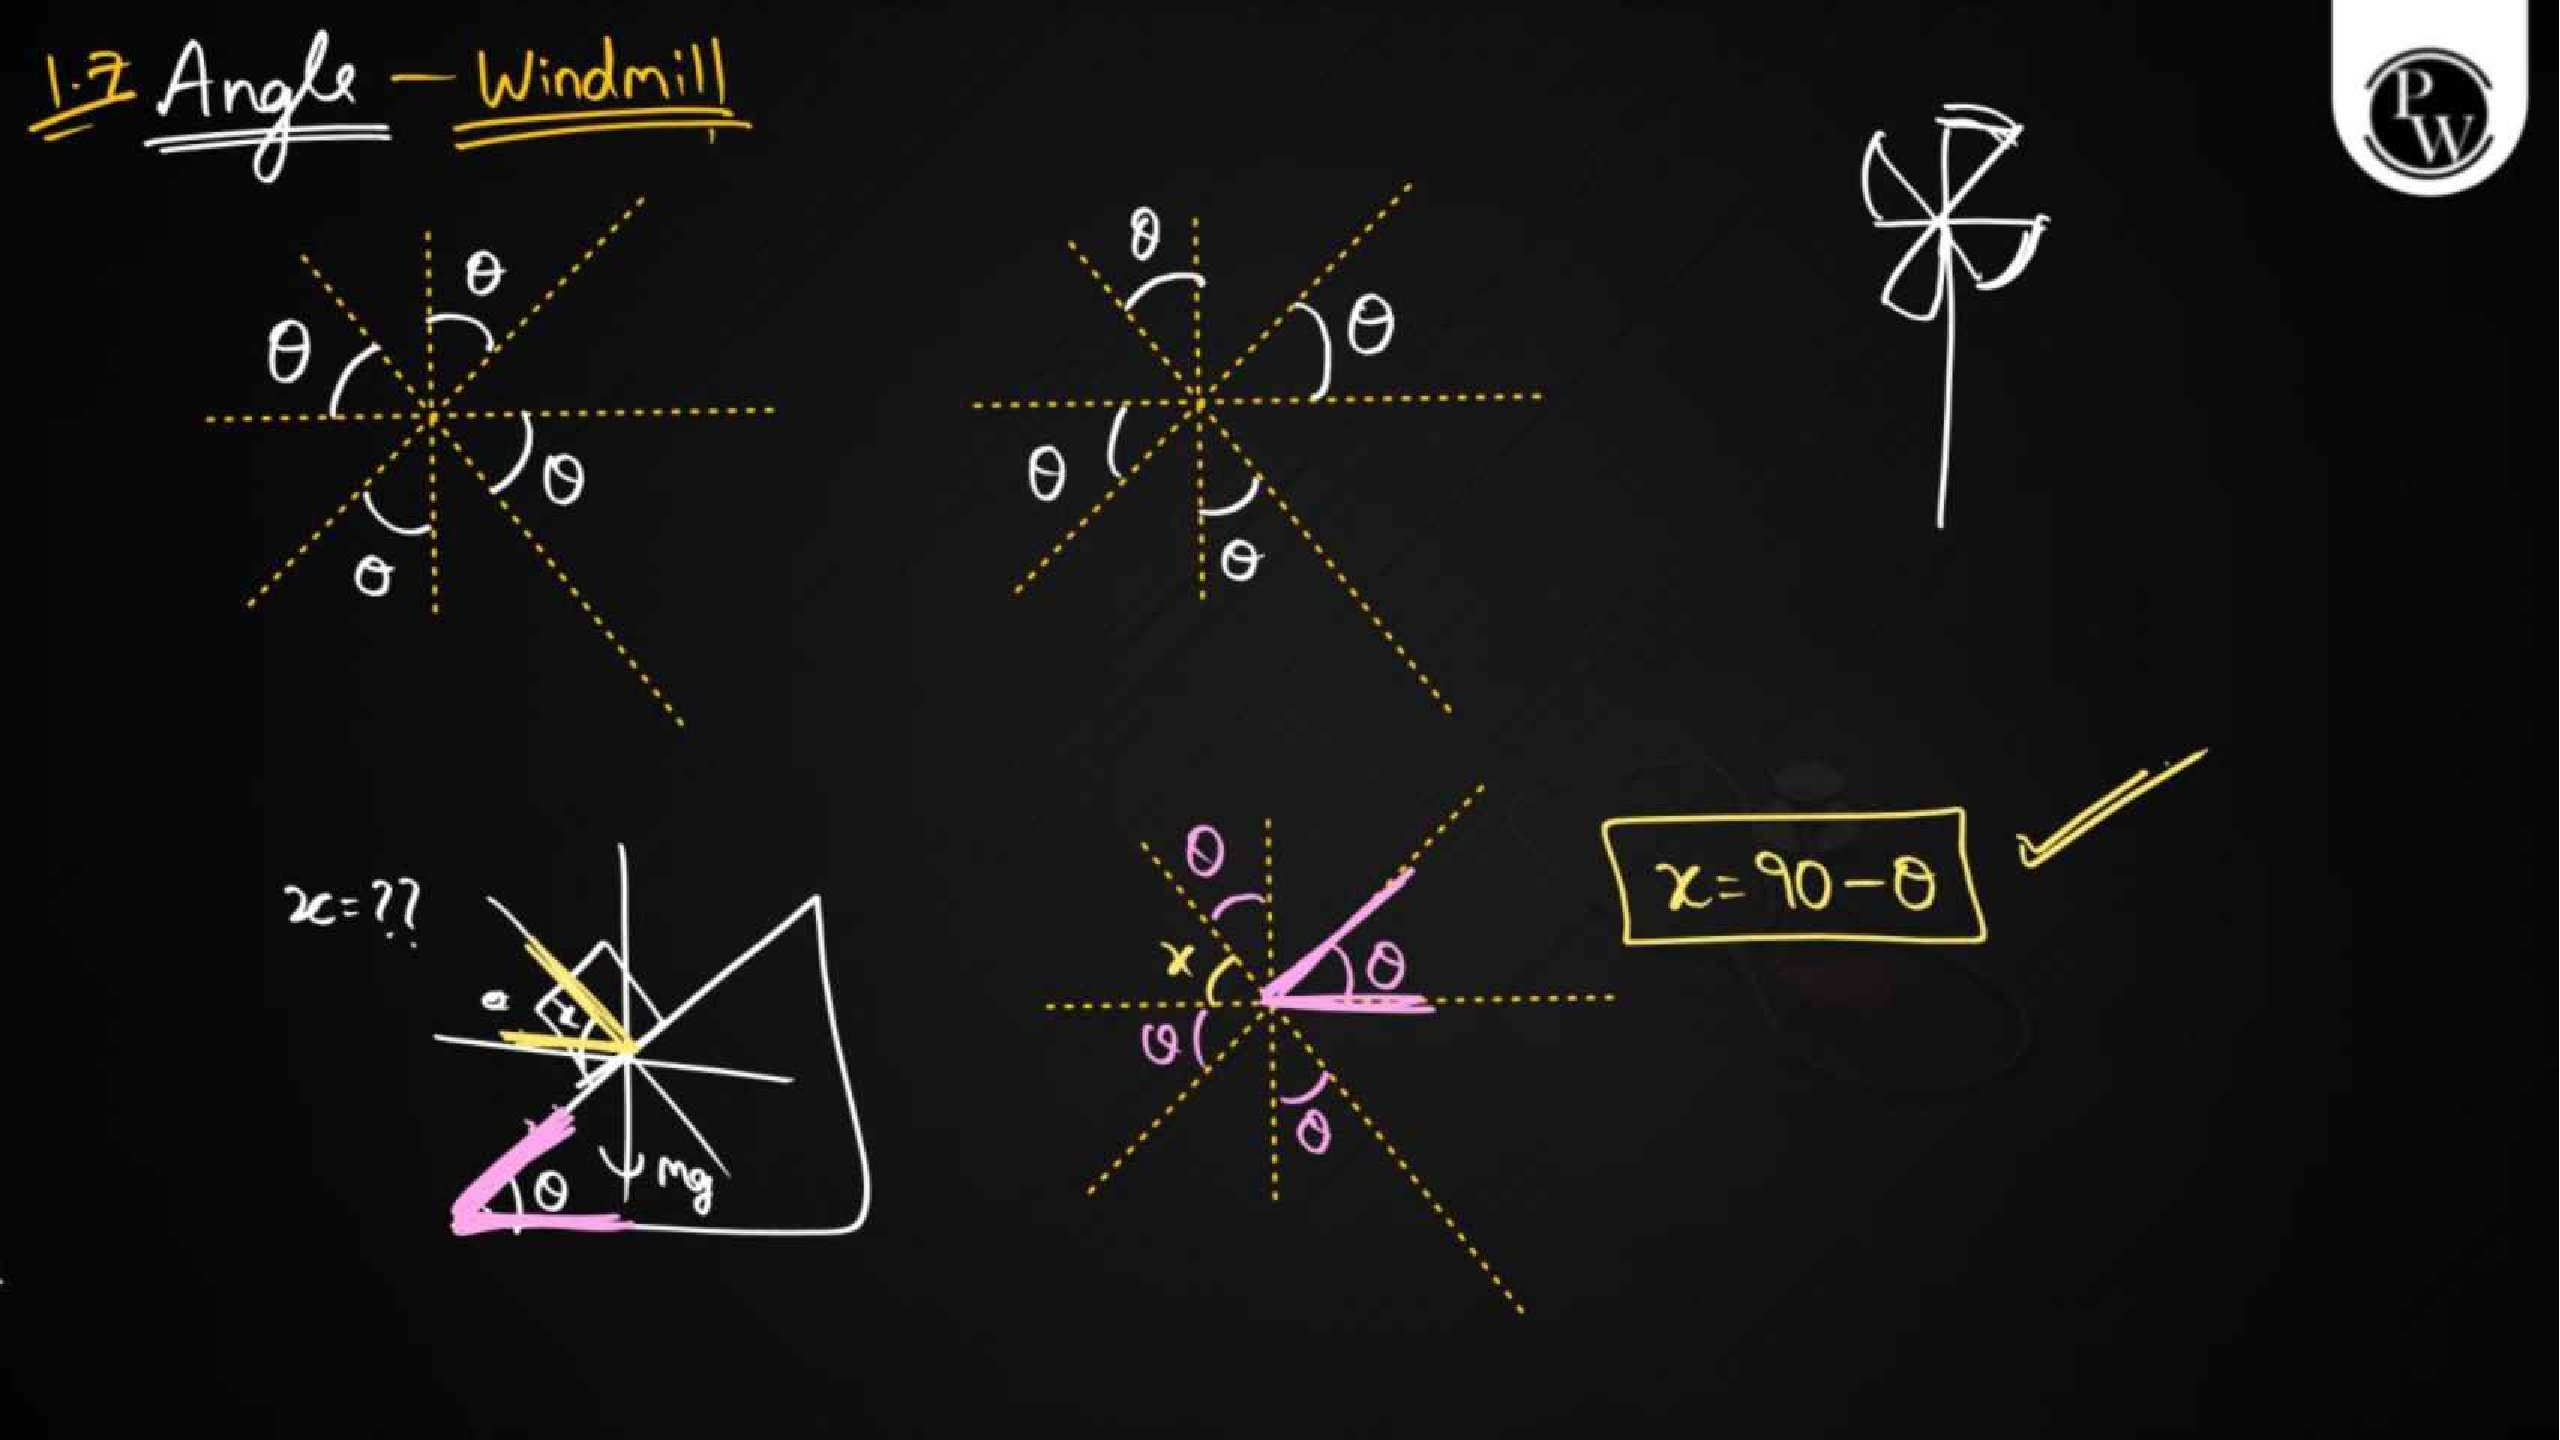 1.7 Angle - Windmill
P
W
θ
θ
θ
θ
θ
θ
θ
θ
x=??
x
θ
mg
θ
x
θ
θ
θ
x=90-θ